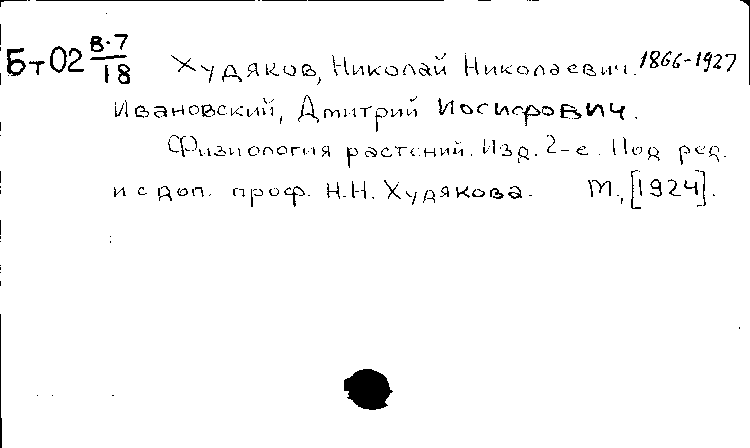 Бт02 В·7/18 Худяков, Николай Николаевич. 1866-1927
Ивановский, Дмитрий Иосифович.
Физиология растений. Изд. 2-е. Под ред.
и с доп. проф. Н.Н. Худякова. М., [1924].